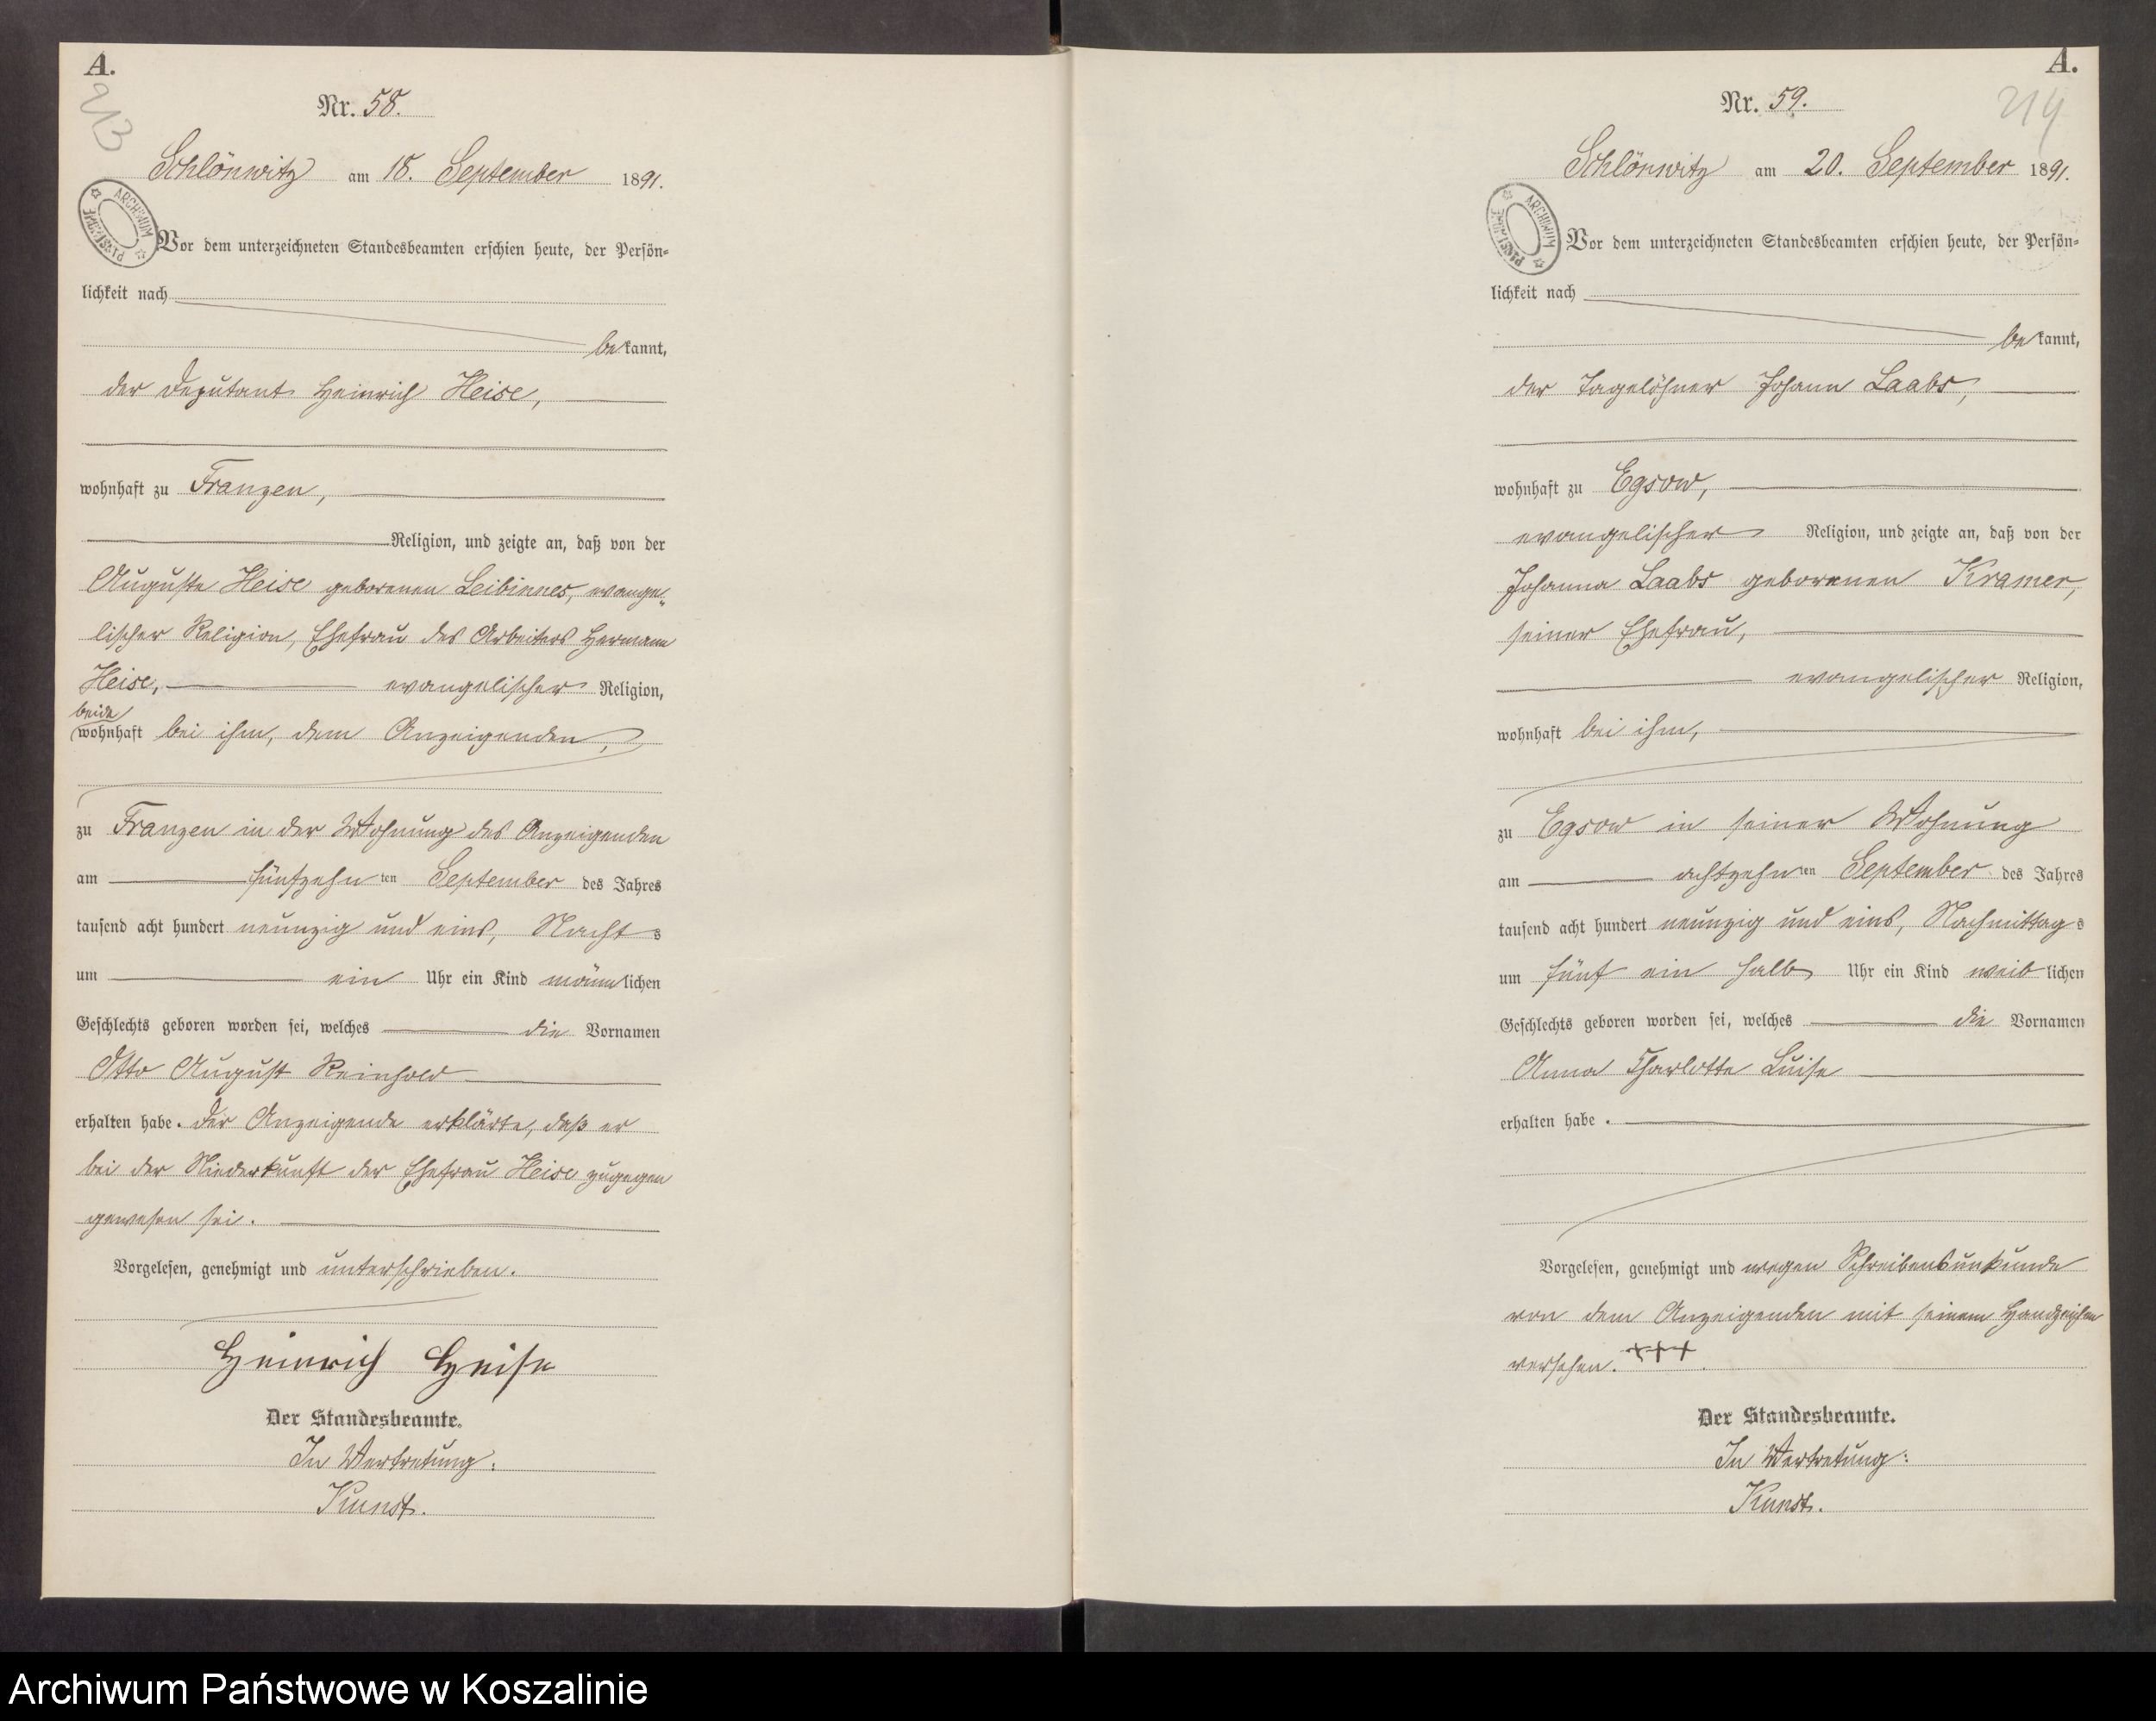 A.
213
Nr. 58.
Schlönwitz am 18. September 1891.
ARCHIWUM PAŃSTWOWE
Vor dem unterzeichneten Standesbeamten erschien heute, der Persön-
lichkeit nach
bekannt,
der Deputant Heinrich Heise,
wohnhaft zu Franzen,
Religion, und zeigte an, daß von der
Auguste Heise geborenen Leibinnes, evange-
lischer Religion, Ehefrau des Arbeiters Hermann
Heise, evangelischer Religion,
beide
wohnhaft bei ihm, dem Anzeigenden,
zu Franzen in der Wohnung des Anzeigenden
am fünfzehnten September des Jahres
tausend acht hundert neunzig und eins, Nachts
um ein Uhr ein Kind männlichen
Geschlechts geboren worden sei, welches die Vornamen
Otto August Reinhold
erhalten habe. Der Anzeigende erklärte, daß er
bei der Niederkunft der Ehefrau Heise zugegen
gewesen sei.
Vorgelesen, genehmigt und unterschrieben.
Heinrich Heise
Der Standesbeamte.
In Vertretung:
Kunst.
A.
214
Nr. 59.
Schlönwitz am 20. September 1891.
ARCHIWUM PAŃSTWOWE
Vor dem unterzeichneten Standesbeamten erschien heute, der Persön-
lichkeit nach
bekannt,
der Tagelöhner Johann Laabs,
wohnhaft zu Egsow,
evangelischer Religion, und zeigte an, daß von der
Johanna Laabs geborenen Kramer,
seiner Ehefrau,
evangelischer Religion,
wohnhaft bei ihm,
zu Egsow in seiner Wohnung
am achtzehnten September des Jahres
tausend acht hundert neunzig und eins, Nachmittags
um fünf ein halb Uhr ein Kind weiblichen
Geschlechts geboren worden sei, welches die Vornamen
Anna Charlotte Luise
erhalten habe.
Vorgelesen, genehmigt und wegen Schreibensunkunde
von dem Anzeigenden mit seinem Handzeichen
versehen. +++
Der Standesbeamte.
In Vertretung:
Kunst.
Archiwum Państwowe w Koszalinie